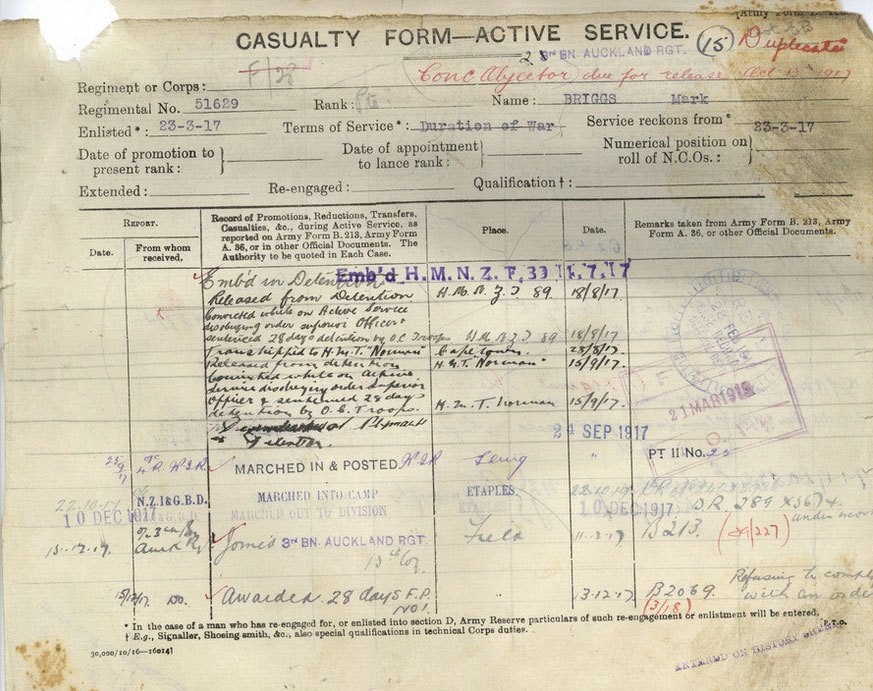 [Army Form B.
CASUALTY FORM—ACTIVE SERVICE.
3RD BN. AUCKLAND RGT.
(15) Duplicate
Conc Objector due for release Oct 13 1917
Regiment or Corps:
Regimental No. 51629 Rank: Pte Name: BRIGGS Mark
Enlisted*: 23-3-17 Terms of Service*: Duration of War Service reckons from* 23-3-17
Date of promotion to present rank: Date of appointment to lance rank: Numerical position on roll of N.C.Os.:
Extended: Re-engaged: Qualification†:
REPORT.
Date. From whom received.
Record of Promotions, Reductions, Transfers, Casualties, &c., during Active Service, as reported on Army Form B. 213, Army Form A. 36, or in other Official Documents. The Authority to be quoted in Each Case.
Place.
Date.
Remarks taken from Army Form B. 213, Army Form A. 36, or other Official Documents.
Emb'd in Detention Emb'd H.M.N.Z.T. 7.17
Released from Detention H.M.N.Z.T 89. 18/8/17.
Convicted while on Active Service
disobeying order superior Officer &
sentenced 28 days detention by O.C Troops H.M.N.Z.T 89 18/8/17
Transhipped to H.M.T. "Norman" Cape Town. 28/8/17.
Released from detention H.M.T. Norman" 15/9/17.
Convicted while on Active
Service disobeying order Superior
Officer & sentenced 28 days
detention by O.C. Troops. H.M.T. Norman 15/9/17.
Plymouth 24 SEP 1917
Detention.
21 MAR 1919
MARCHED IN & POSTED Sling " PT II No.
22.10.17 N.Z.I&G.B.D. MARCHED INTO CAMP ETAPLES 22.10.17
10 DEC 1917 N.Z.I&G.B.D. MARCHED OUT TO DIVISION ETAPLES 10 DEC 1917 DR. 289
Auck R Joins 3RD BN. AUCKLAND RGT. Field B213. (39/227)
15th Coy
Do. Awarded 28 days F.P. No 1. " 13.12.17 B2069. Refusing to comply with an order
(3/18)
* In the case of a man who has re-engaged for, or enlisted into section D, Army Reserve particulars of such re-engagement or enlistment will be entered.
† E.g., Signaller, Shoeing smith, &c., also special qualifications in technical Corps duties. [P.T.O.
30,000/10/16—16014]
ENTERED ON HISTORY SHEET